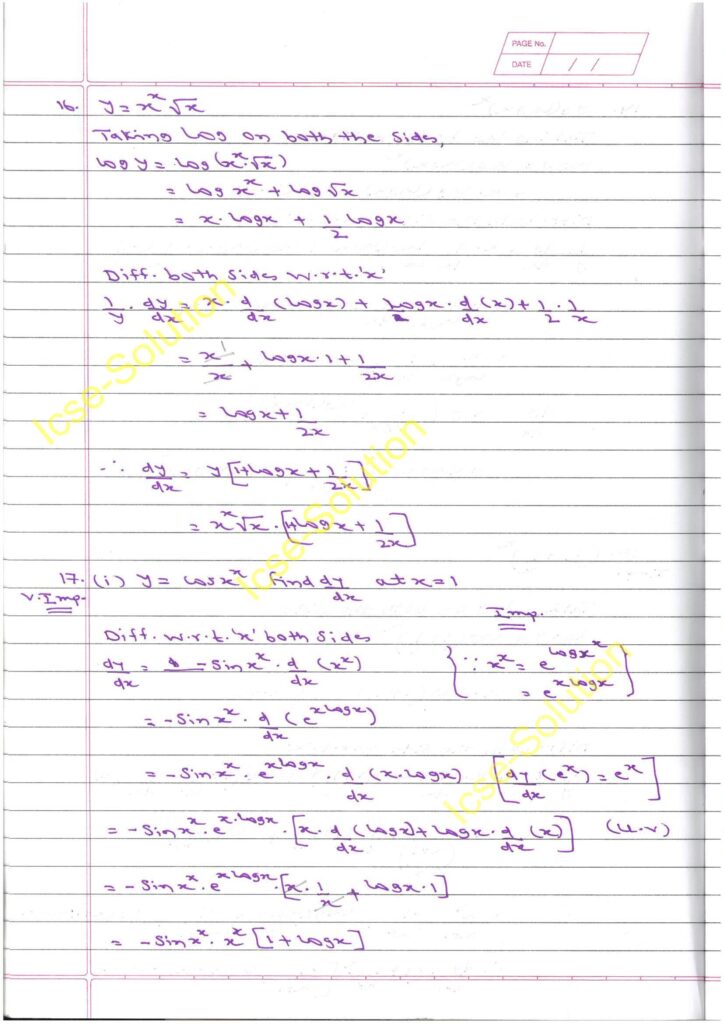 PAGE No.
DATE / /
16. y = x^x √x
Taking Log on both the sides,
log y = log (x^x · √x)
= log x^x + log √x
= x · log x + 1/2 log x
Diff. both sides w.r.t. 'x'
1/y · dy/dx = x · d/dx (log x) + log x · d/dx (x) + 1/2 · 1/x
= x/x + log x · 1 + 1/2x
= log x + 1/2x
∴ dy/dx = y [1+log x + 1/2x]
= x^x √x · [1+log x + 1/2x]
17. (i) y = cos x^x find dy/dx at x = 1
V. Imp.
Imp.
Diff. w.r.t. 'x' both sides
dy/dx = - sin x^x · d/dx (x^x) {∵ x^x = e^(log x^x)
= e^(x log x)}
= - sin x^x · d/dx (e^(x log x))
= - sin x^x · e^(x log x) · d/dx (x · log x) [dy/dx (e^x) = e^x]
= - sin x^x · e^(x · log x) · [x · d/dx (log x) + log x · d/dx (x)] (u.v)
= - sin x^x · e^(x log x) · [x · 1/x + log x · 1]
= - sin x^x · x^x [1 + log x]
Icse-Solution
Icse-Solution
Icse-Solution